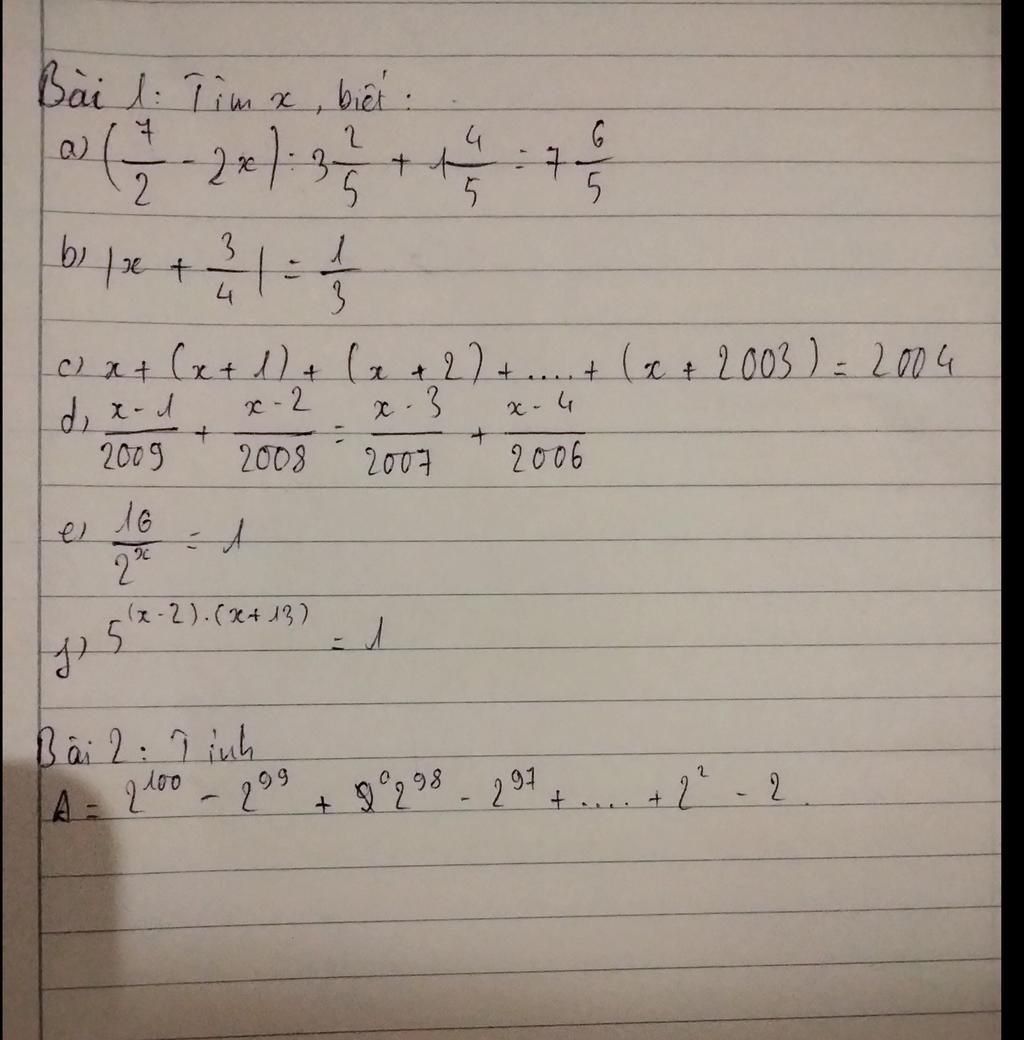 Bài 1: Tìm x, biết:
a) (7/2 - 2x) : 3 2/5 + 1 4/5 = 7 6/5
b) |x + 3/4| = 1/3
c) x + (x + 1) + (x + 2) + .... + (x + 2003) = 2004
d) x - 1/2009 + x - 2/2008 = x - 3/2007 + x - 4/2006
e) 16/2^x = 1
f) 5^(x - 2).(x + 13) = 1
Bài 2: Tính
A = 2^100 - 2^99 + 2^98 - 2^97 + ..... + 2^2 - 2.